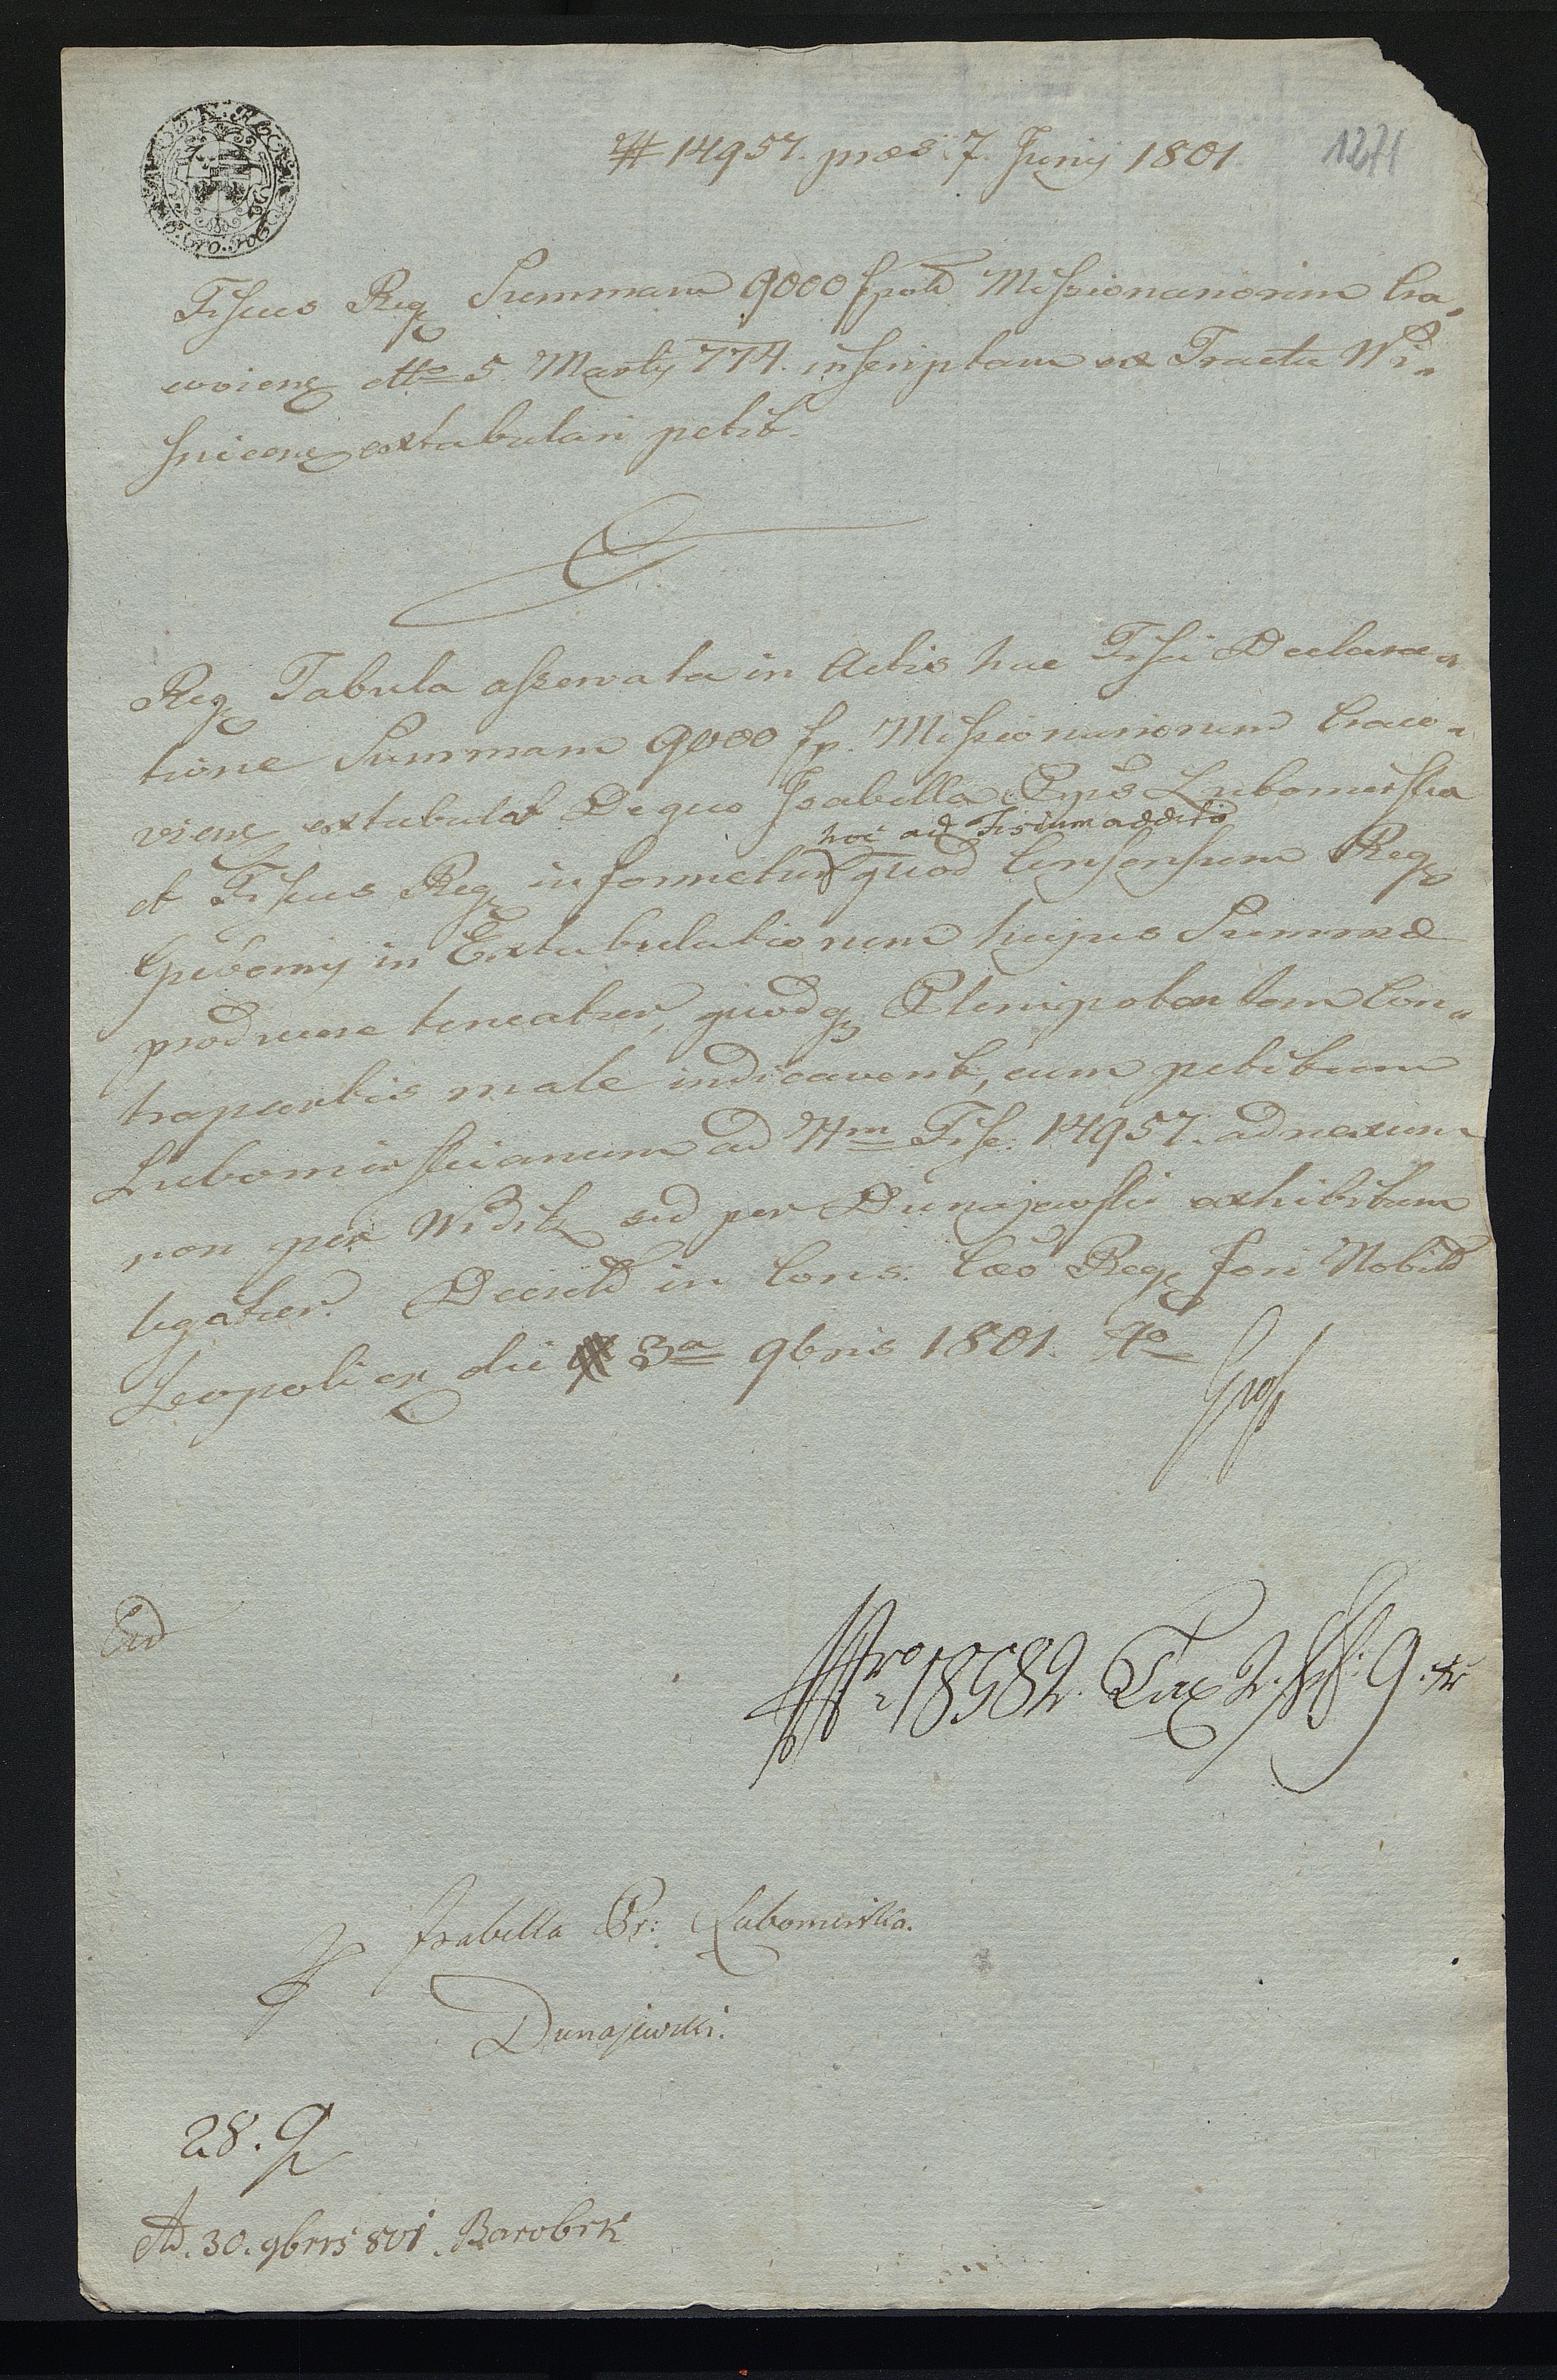 # 14957. præs: 7. Junij 1801
1271
Fiscus Reg Summam 9000 fpold Missionariorum Cra„
coviens dtto 5. Martij 774. inscriptam ex Tractu Wi„
snicens extabulari petit.
Reg Tabula asservata in Actis hac Fisci Declara„
tione Summam 9000 fp. Missionariorum Craco„
viens extabulet De quo Isabella Ppis Lubomirska
hoc ad Fiscum addito
et Fiscus Reg informetur quod Consensum Reg
Gubernij in Extabulationem hujus Summæ
producere teneatur, quodq Plenipotentem Con„
trapartis male indicaverit, cum petitum
Lubomirscianum ad Num Fisc: 14957. adnexum
non per Widitz sed per Dunajewski exhibitum
legatur. Decretd in Cons: Cæo Reg Fori Nobild
Leopolien die 3a 9bris 1801.
Nro 18582. Tax 2. f 9. xr
Isabella Pr: Lubomirska.
Dunajewski.
28. 9
Ad. 30. 9bris 801.